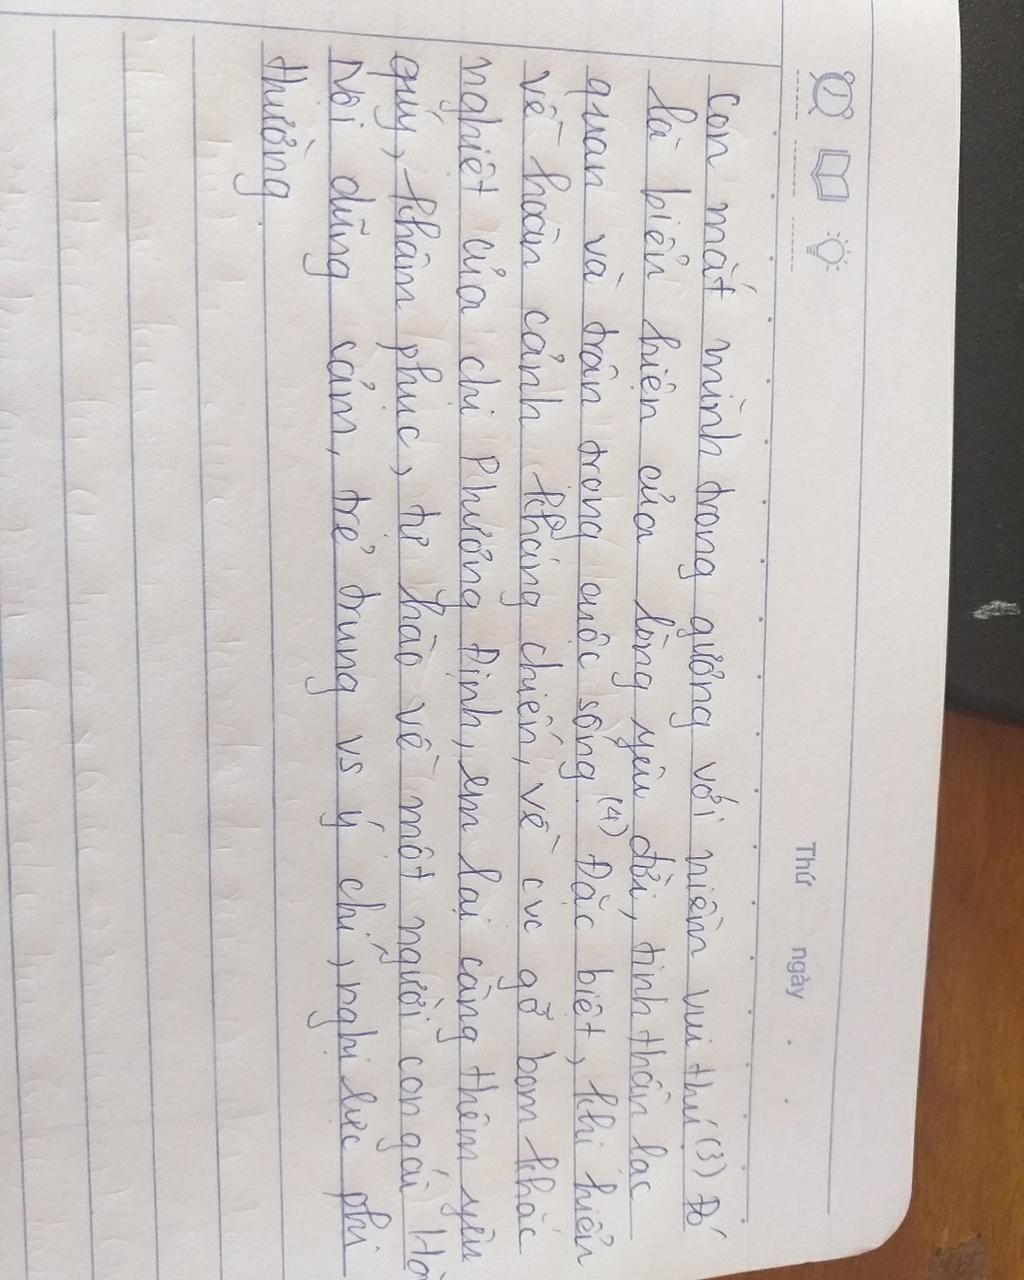 Thứ ngày
con mắt mình trong gương với niềm vui thú (3) Đó
là biển hiện của lòng yêu đời, tinh thần lạc
quan và trân trong cuộc sống. (4) Đặc biệt, khi hiển
về hoàn cảnh kháng chiến, về cvc gỡ bom khắc
nghiệt của chị Phương Định, em lại càng thêm yêu
quý, khâm phục, tự hào về một người con gái Hà
Nội dũng cảm, trẻ trung vs ý chí, nghị lực phi
thường.